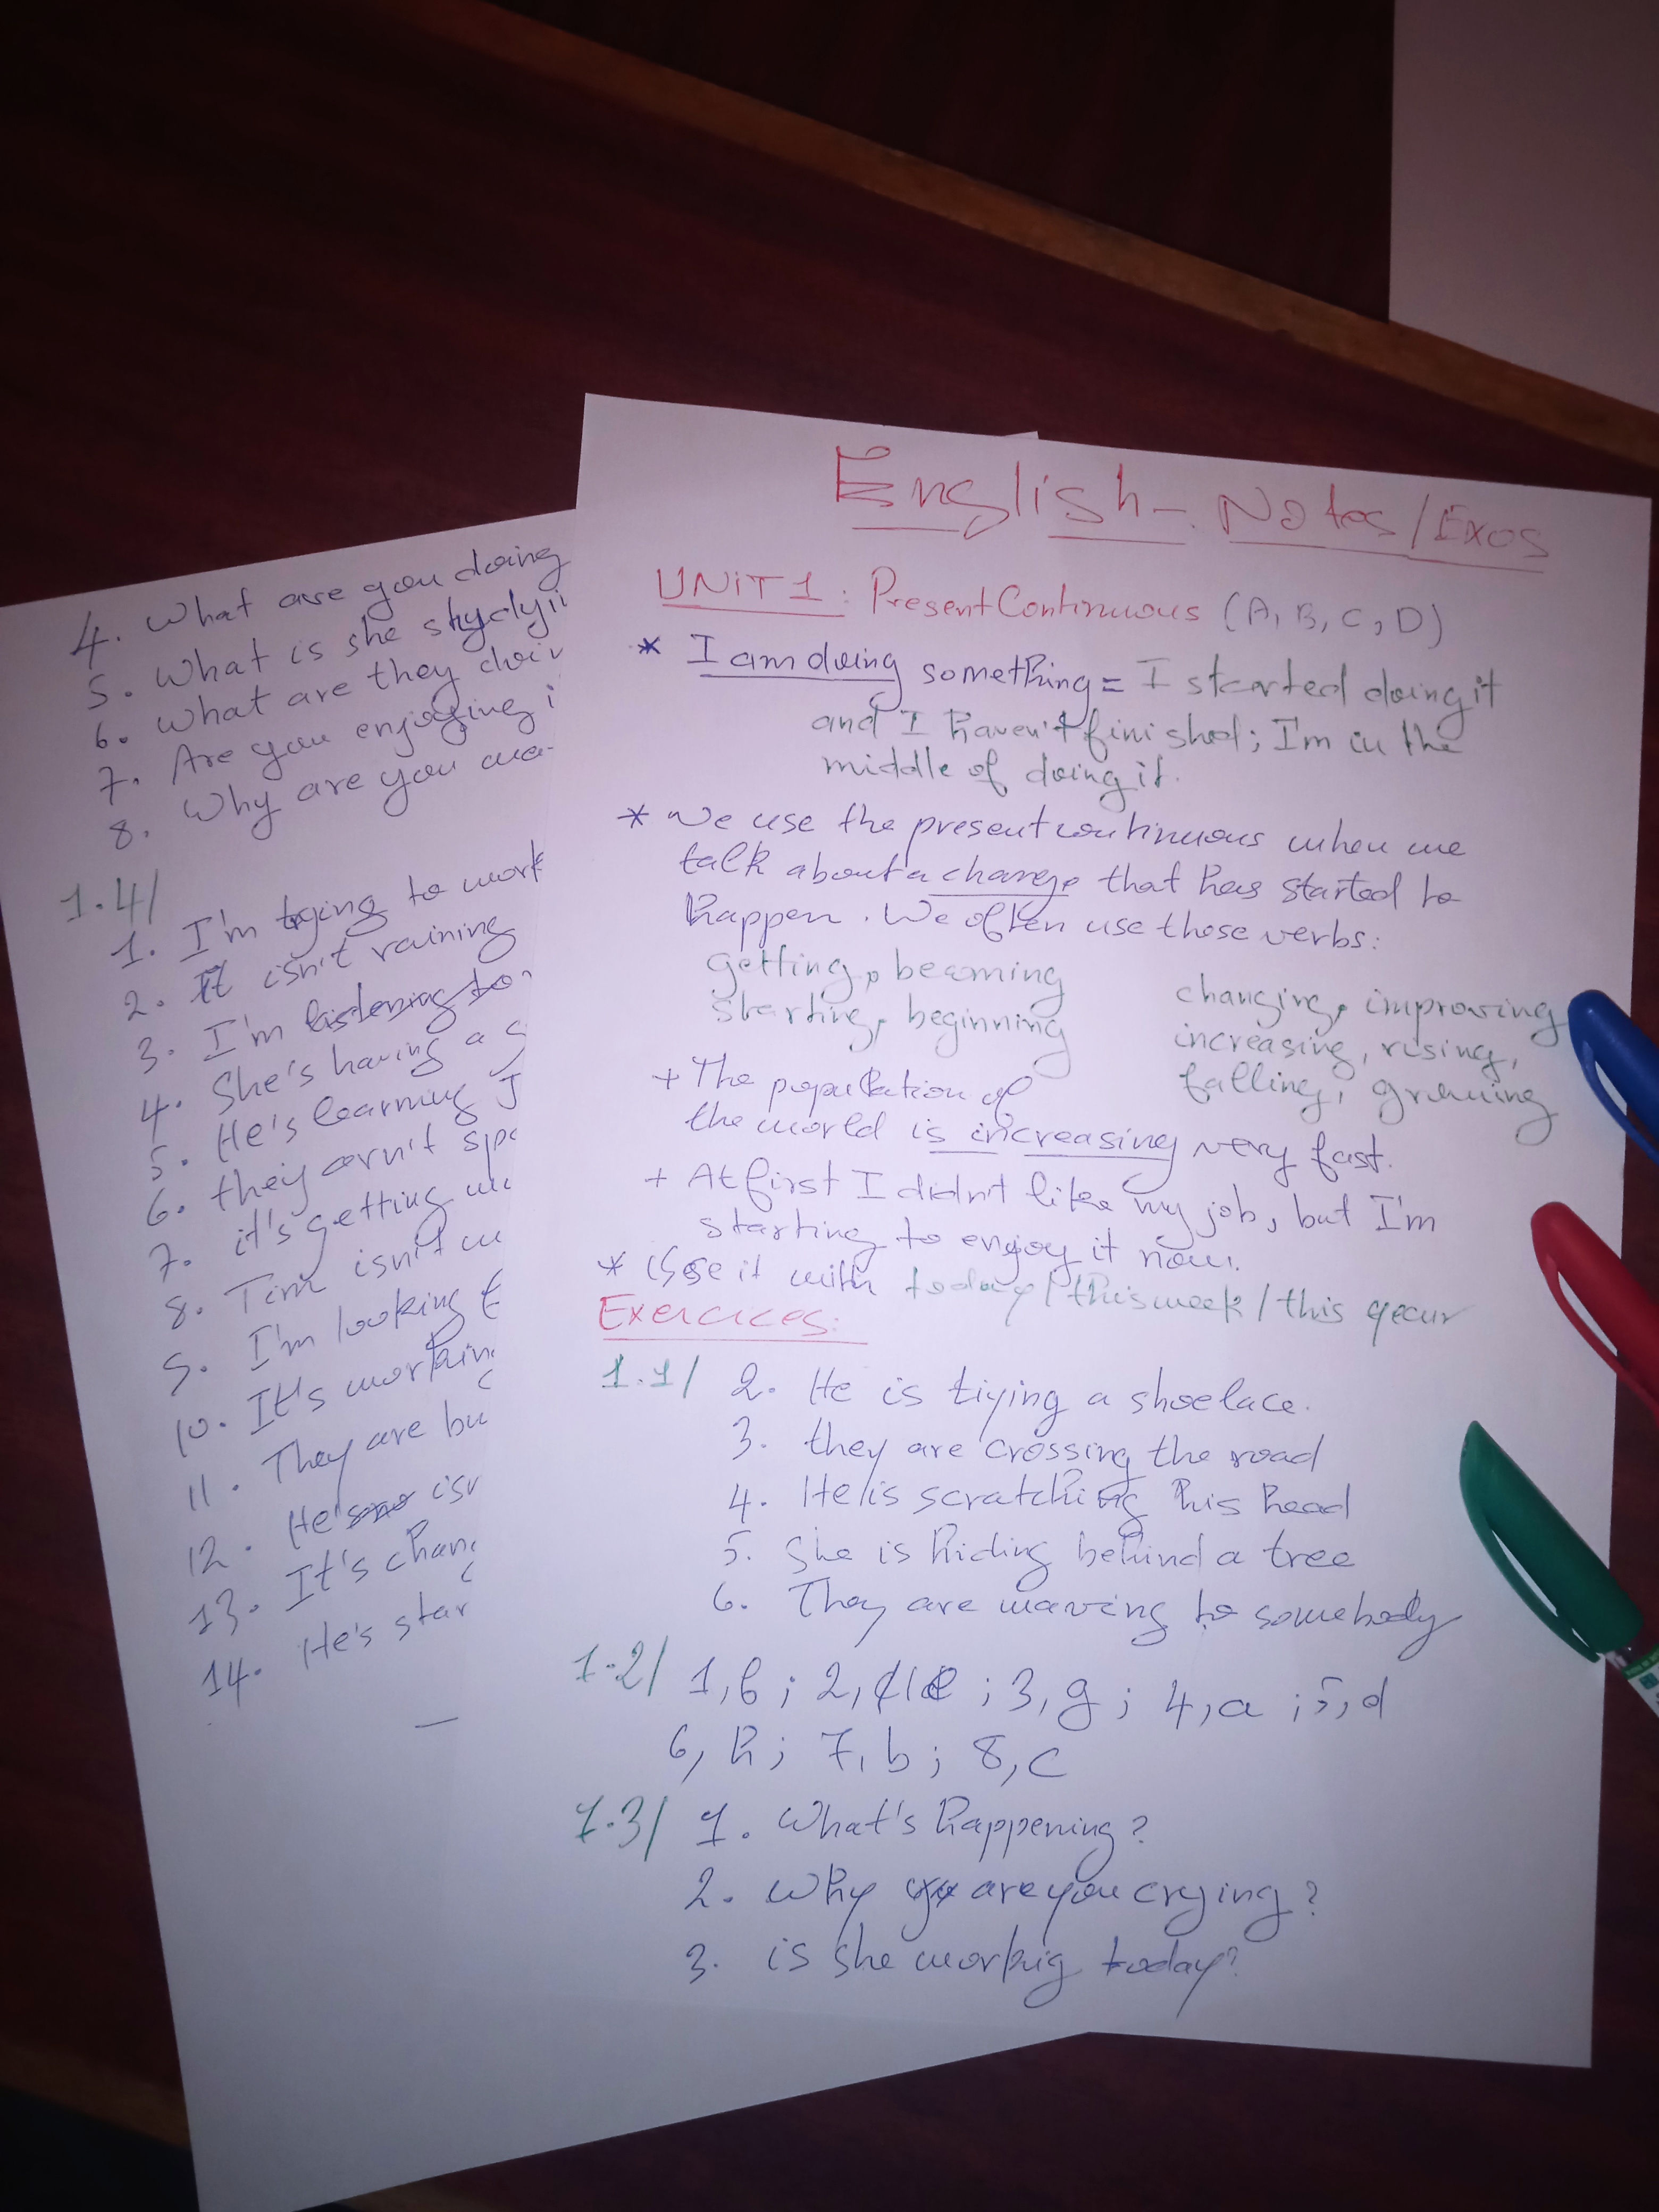 English - Notes/Exos
UNIT 1: Present Continuous (A, B, C, D)
* I am doing something = I started doing it
and I haven't finished; I'm in the
middle of doing it.
* We use the present continuous when we
talk about a change that has started to
happen. We often use these verbs:
getting, becoming
starting, beginning
changing, improving
increasing, rising,
falling, growing
+ The population of
the world is increasing very fast.
+ At first I didn't like my job, but I'm
starting to enjoy it now.
* Use it with today / this week / this year
Exercices:
1.1/ 2. He is tiying a shoelace.
3. they are crossing the road
4. He is scratching his head
5. She is hiding behind a tree
6. They are waving to somebody
1.2/ 1, ; 2, e ; 3, g ; 4, a ; 5, d
6, h ; 7, b ; 8, c
1.3/ 1. What's happening?
2. Why are you crying?
3. is she workig today?
4. What are you doing
5. What is she
6. What are they
7. Are you enjoying i
8. Why are you
1.4/
1. I'm trying to work
2. It isn't raining
3. I'm listening to
4. She's having a
5. He's learning J
6. they arn't spe
7. it's getting
8. Tim isn't
9. I'm looking f
10. It's workin
11. They are bu
12. He's isn
13. It's chan
14. He's star